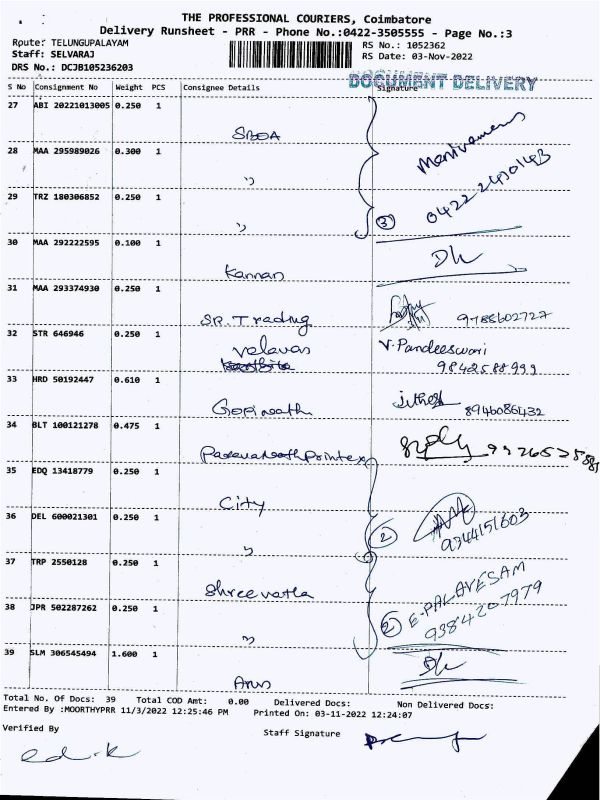 THE PROFESSIONAL COURIERS, Coimbatore
Delivery Runsheet - PRR - Phone No.:0422-3505555 - Page No.:3
Rpute: TELUNGUPALAYAM
RS No.: 1052362
Staff: SELVARAJ
RS Date: 03-Nov-2022
DRS No.: DCJB105236203
DOCUMENT DELIVERY
S No Consignment No Weight PCS Consignee Details Signature
27 ABI 20221013005 0.250 1
SBOA
28 MAA 295989026 0.300 1
"
29 TRZ 180306852 0.250 1
" 3 0422 2490143
30 MAA 292222595 0.100 1
Kannan
31 MAA 293374930 0.250 1
SR. Trading 9788602727
32 STR 646946 0.250 1
Velavan V. Pandeeswari
9842588999
33 HRD 50192447 0.610 1
Gopinath 8946086432
34 BLT 100121278 0.475 1
35 EDQ 13418779 0.250 1
City
36 DEL 600021301 0.250 1
" 2 9344151603
37 TRP 2550128 0.250 1
38 JPR 502287262 0.250 1
" 2 E-PALAVESAM
9384207979
39 SLM 306545494 1.600 1
Total No. Of Docs: 39 Total COD Amt: 0.00 Delivered Docs: Non Delivered Docs:
Entered By :MOORTHYPRR 11/3/2022 12:25:46 PM Printed On: 03-11-2022 12:24:07
Verified By
Staff Signature